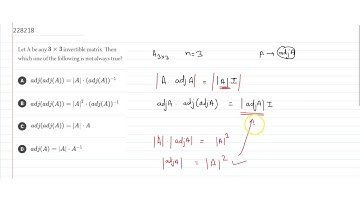 228218
Let A be any 3 × 3 invertible matrix. Then
which one of the following is not always true?
A adj(adj(A)) = |A| · (adj(A))⁻¹
B adj(adj(A)) = |A|² · (adj(A))⁻¹
C adj(adj(A)) = |A| · A
D adj(A) = |A| · A⁻¹
A₃ₓ₃ n=3 A → adjA
|A. adjA| = ||A| I|
adjA . adj(adjA) = |adjA| I
A
|A| |adjA| = |A|³
|adjA| = |A|²